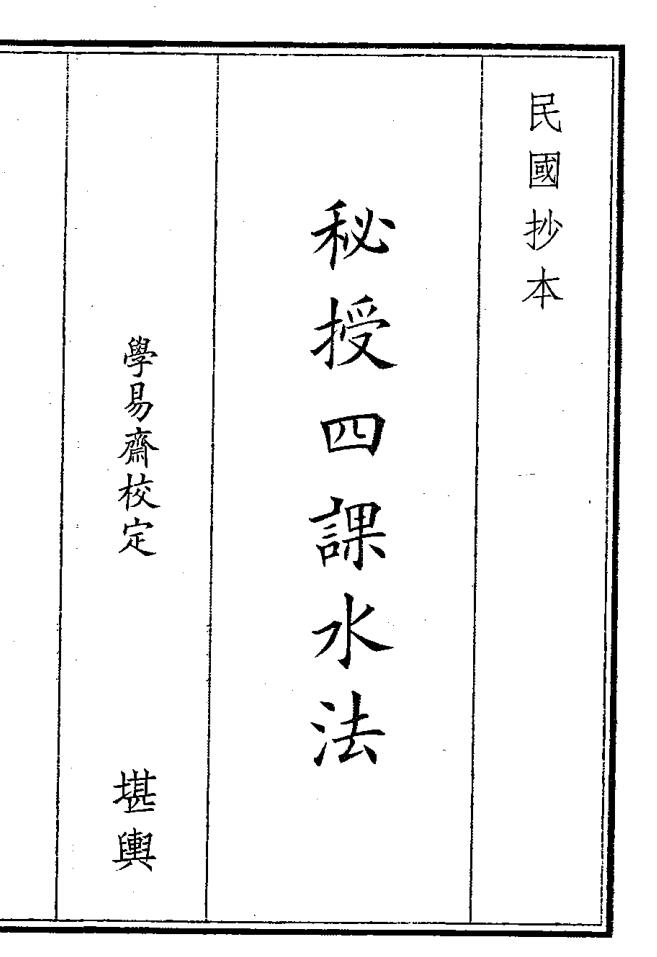 民國抄本
秘授四課水法
學易齋校定
堪輿